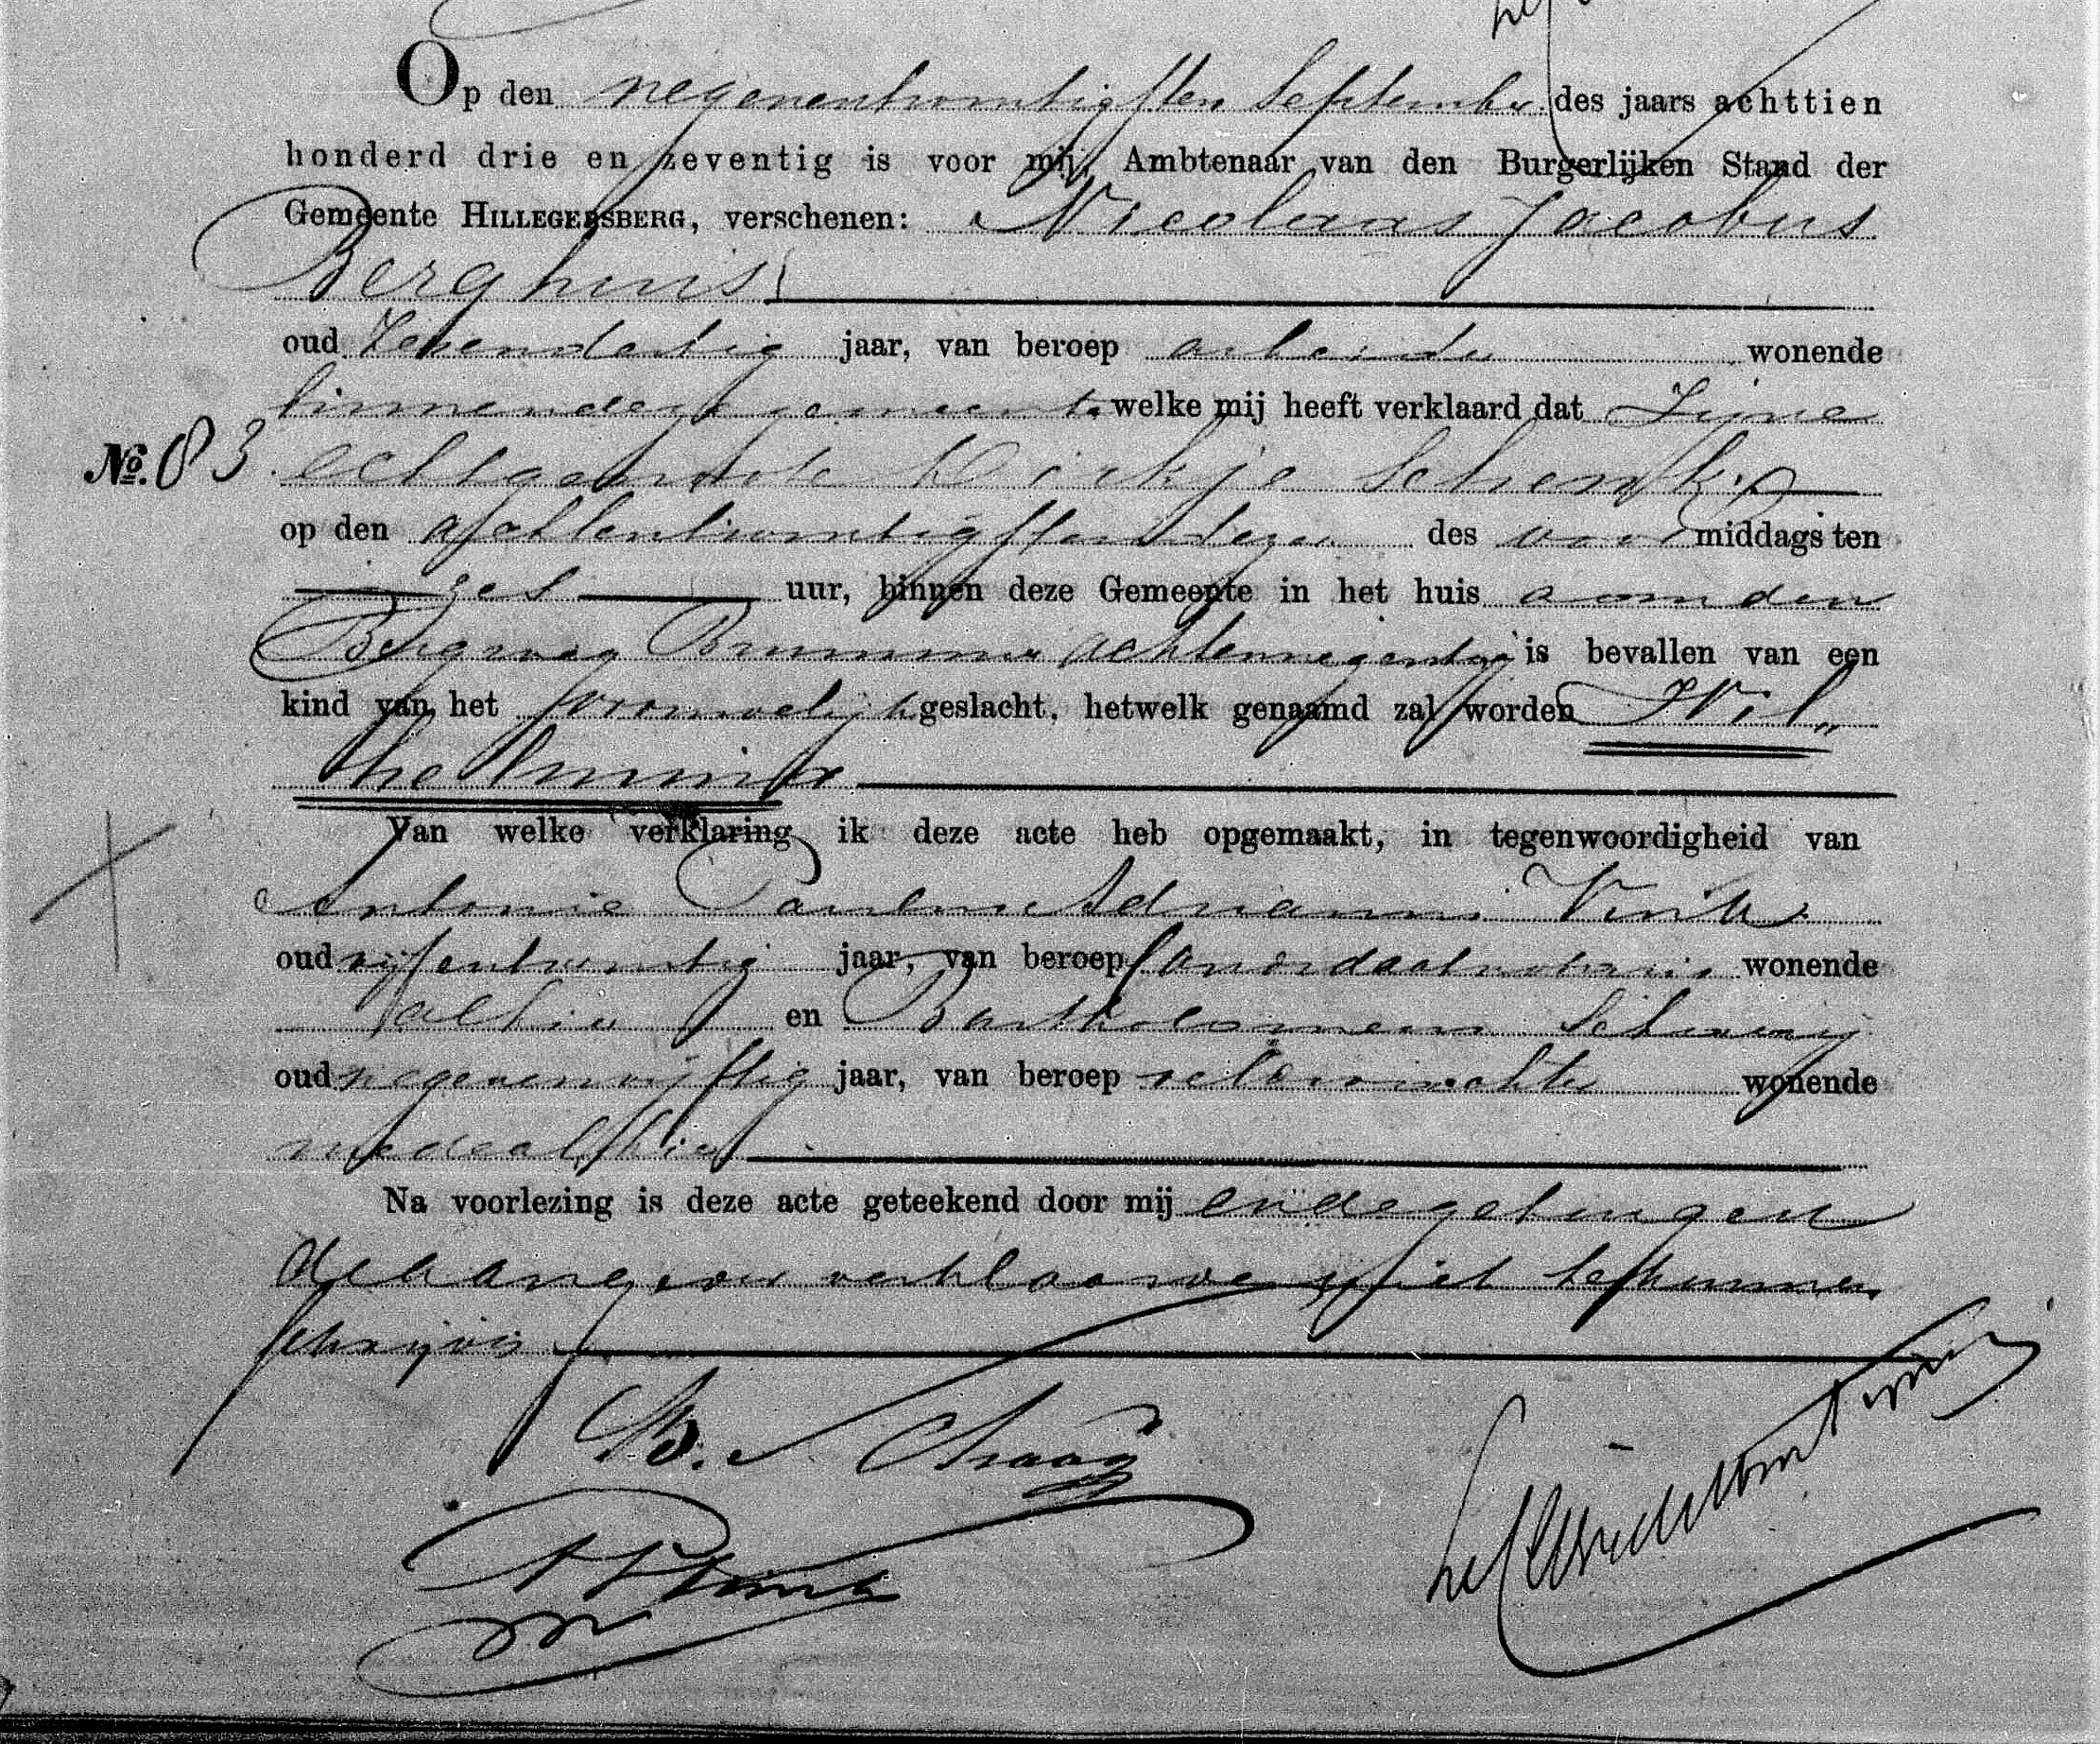 Op den negenentwintigsten September des jaars achttien
honderd drie en zeventig is voor mij, Ambtenaar van den Burgerlijken Stand der
Gemeente HILLEGERSBERG, verschenen: Nicolaas Jacobus
Berghuis
oud Zevendertig jaar, van beroep arbeider wonende
binnen deze gemeente welke mij heeft verklaard dat Zijne
No. 83 echtgenoote Dirkje Schenk
op den achtentwintigsten dezer des voor middags ten
zes uur, binnen deze Gemeente in het huis aan den
Bergweg Nummer achtennegentig is bevallen van een
kind van het vrouwelijk geslacht, hetwelk genaamd zal worden Wil„
helmina
Van welke verklaring ik deze acte heb opgemaakt, in tegenwoordigheid van
Antonie Paulus Adrianus Vink
oud vijfentwintig jaar, van beroep candidaat notaris wonende
alhier en Bartholomeus
oud negenenvijftig jaar, van beroep veldwachter wonende
mede alhier
Na voorlezing is deze acte geteekend door mij en de getuigen
de aangever verklaarde niet te kunnen
schrijven
B.